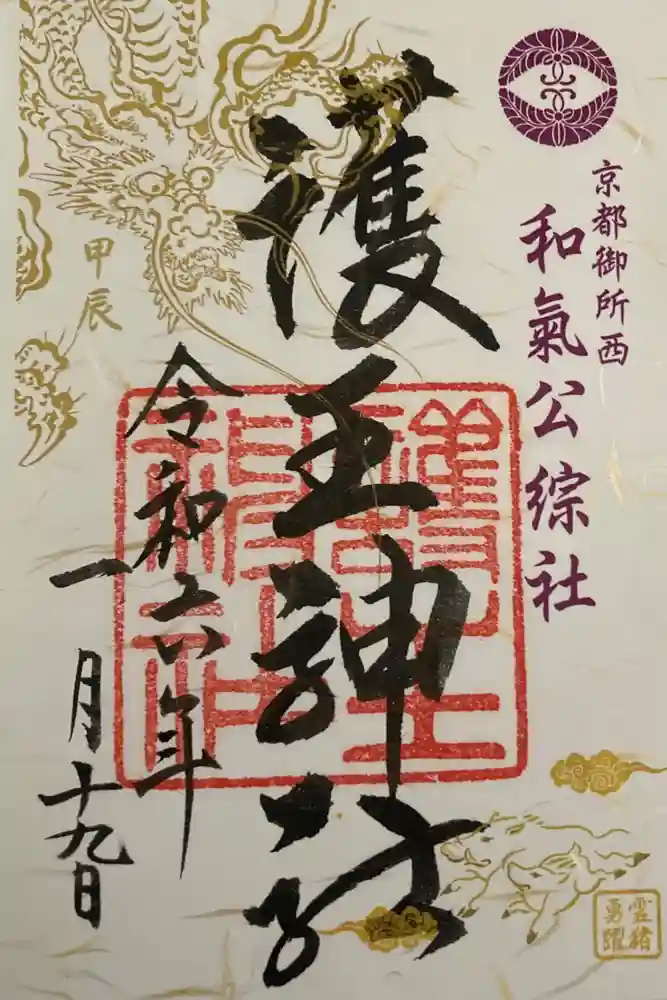 京都御所西
和氣公綜社
護王神社
護王
神社
令和六年
一月十九日
甲辰
霊猪
勇躍